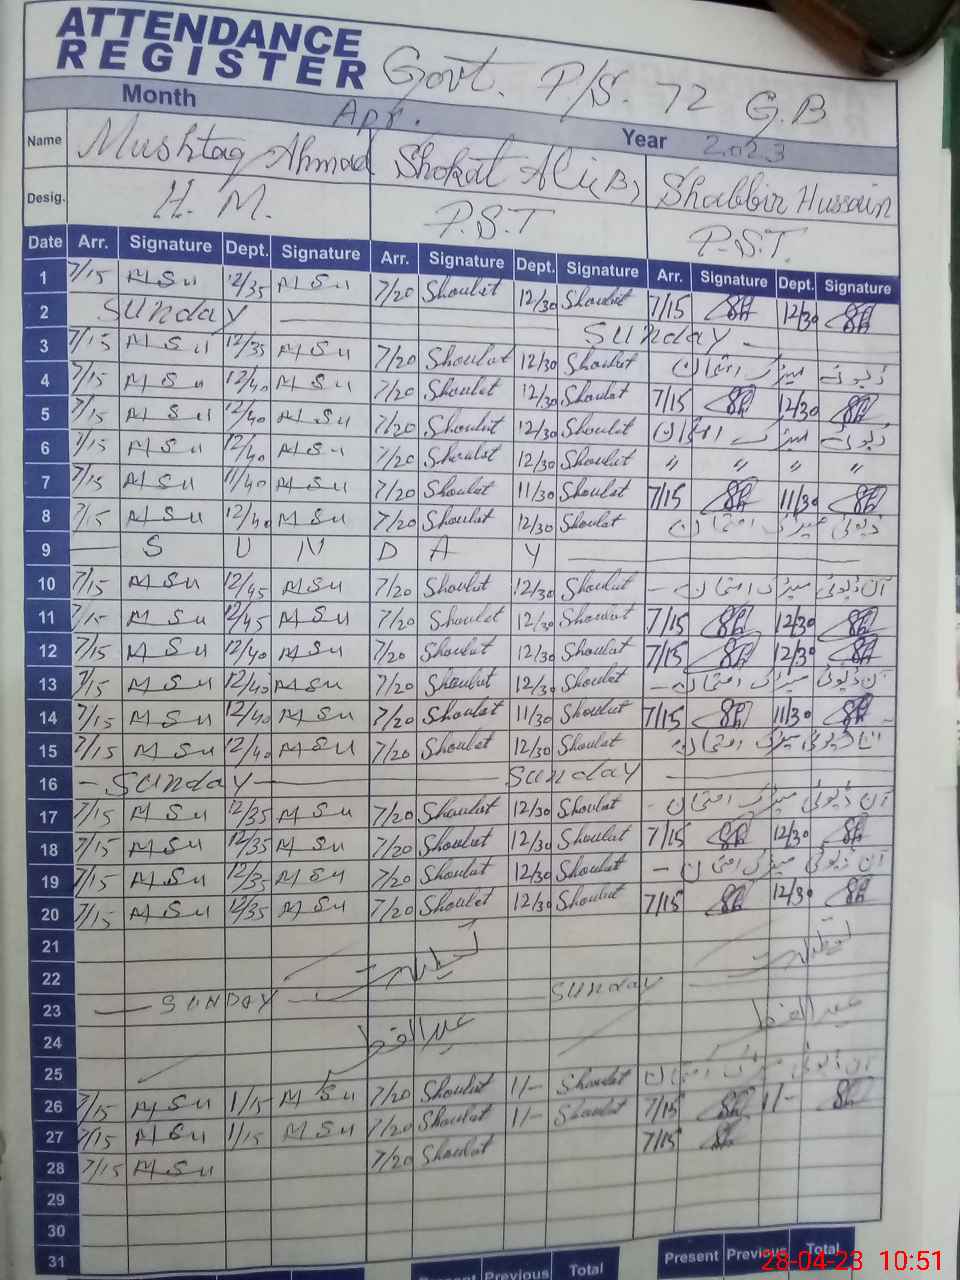 ATTENDANCE
REGISTER Govt. P/S. 72 G.B
Month Apr. Year 2023
Name Mushtaq Ahmad Shokat Ali(B) Shabbir Hussain
Desig. H.M. P.S.T P.S.T.
Date Arr. Signature Dept. Signature Arr. Signature Dept. Signature Arr. Signature Dept. Signature
1 7/15 12/35 7/20 Shoukat 12/30 Shoukat 7/15 12/30
2 Sunday Sunday
3 7/15 12/35 7/20 Shoukat 12/30 Shoukat ڈیوٹی میٹرک امتحان
4 7/15 12/40 7/20 Shoukat 12/30 Shoukat 7/15 12/30
5 7/15 12/40 7/20 Shoukat 12/30 Shoukat ڈیوٹی میٹرک امتحان
6 7/15 12/40 7/20 Shoukat 12/30 Shoukat " " " "
7 7/15 11/40 7/20 Shoukat 11/30 Shoukat 7/15 11/30
8 7/15 12/40 7/20 Shoukat 12/30 Shoukat ڈیوٹی میٹرک امتحان
9 S U N D A Y
10 7/15 12/45 7/20 Shoukat 12/30 Shoukat آن ڈیوٹی میٹرک امتحان
11 7/15 12/45 7/20 Shoukat 12/30 Shoukat 7/15 12/30
12 7/15 12/40 7/20 Shoukat 12/30 Shoukat 7/15 12/30
13 7/15 12/40 7/20 Shoukat 12/30 Shoukat آن ڈیوٹی میٹرک امتحان
14 7/15 12/40 7/20 Shoukat 11/30 Shoukat 7/15 11/30
15 7/15 12/40 7/20 Shoukat 12/30 Shoukat آن ڈیوٹی میٹرک امتحان
16 Sunday Sunday
17 7/15 12/35 7/20 Shoukat 12/30 Shoukat آن ڈیوٹی میٹرک امتحان
18 7/15 12/35 7/20 Shoukat 12/30 Shoukat 7/15 12/30
19 7/15 12/35 7/20 Shoukat 12/30 Shoukat آن ڈیوٹی میٹرک امتحان
20 7/15 12/35 7/20 Shoukat 12/30 Shoukat 7/15 12/30
21 تعطیلات تعطیلات
22
23 SUNDAY Sunday
24 عید الفطر عید الفطر
25 آن ڈیوٹی میٹرک امتحان
26 7/15 1/15 7/20 Shoukat 1/- Shoukat 7/15 1/-
27 7/15 1/15 7/20 Shoukat 1/- Shoukat 7/15
28 7/15 7/20 Shoukat
29
30
31
Present Previous Total Present Previous Total
28-04-23 10:51